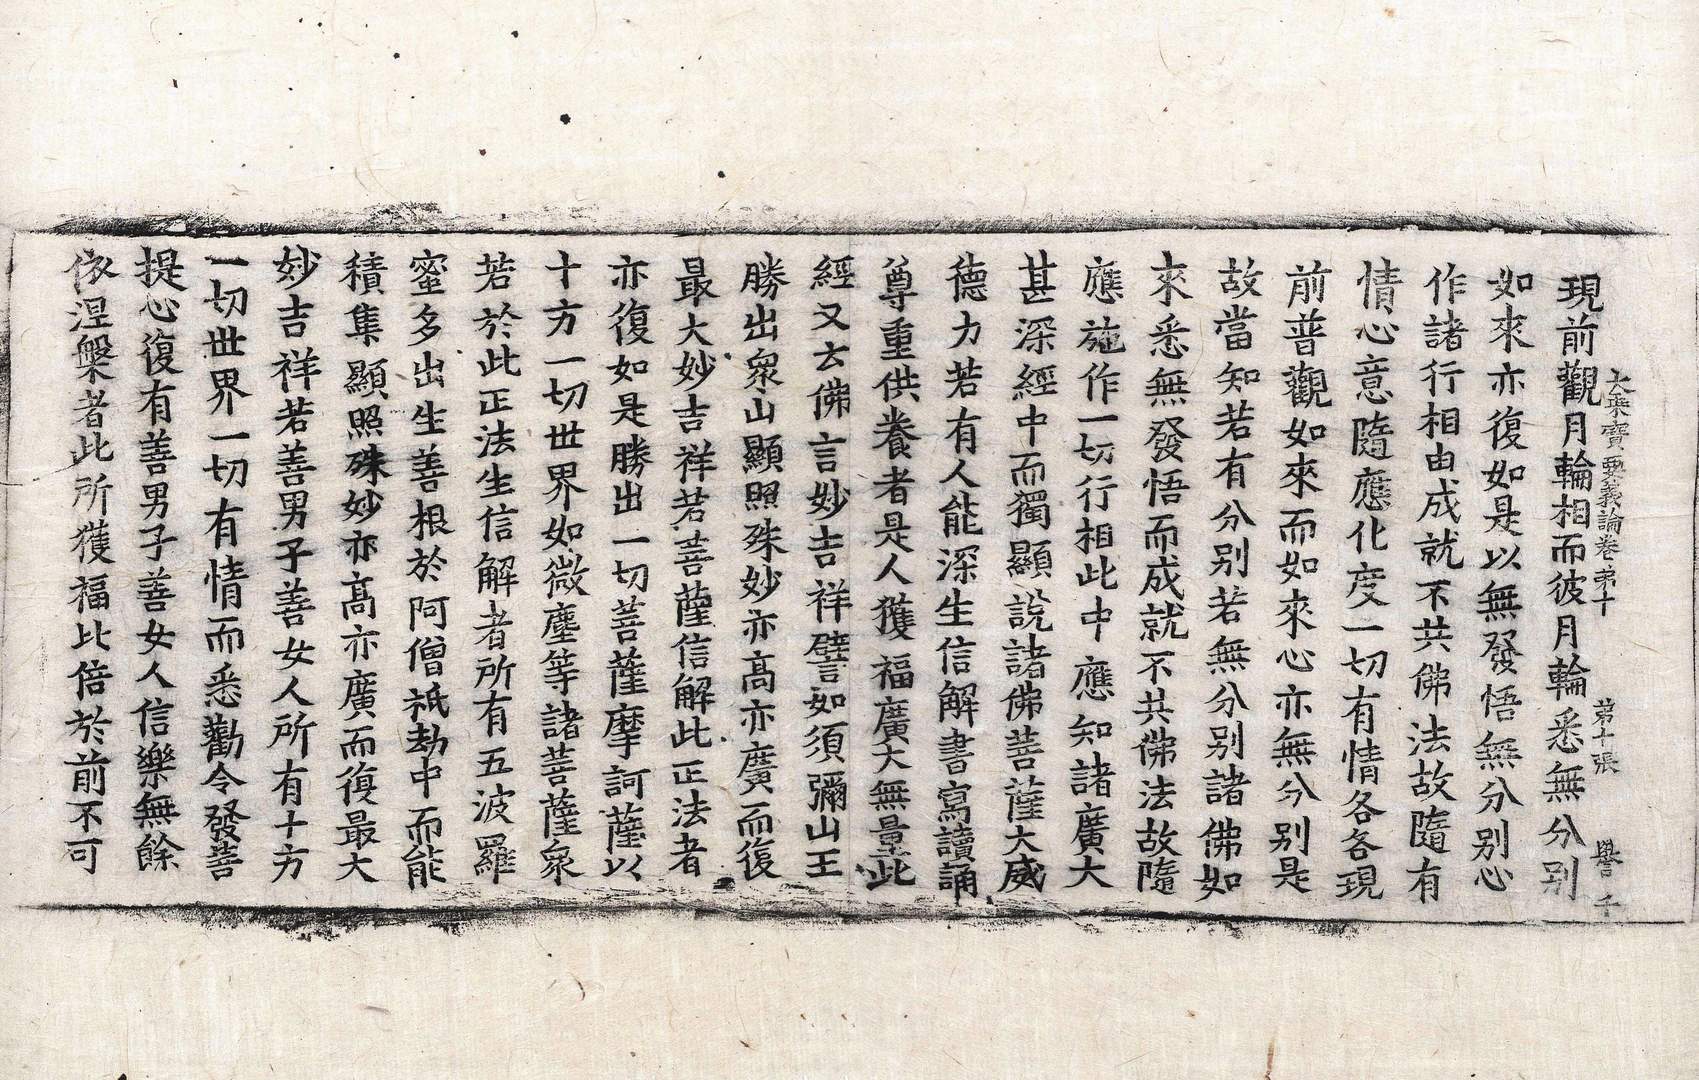 大乘寶要義論卷第十 第十張 譽 千
現前觀月輪相而彼月輪悉無分別
如來亦復如是以無發悟無分別心
作諸行相由成就不共佛法故隨有
情心意隨應化度一切有情各各現
前普觀如來而如來心亦無分別是
故當知若有分別若無分別諸佛如
來悉無發悟而成就不共佛法故隨
應施作一切行相此中應知諸廣大
甚深經中而獨顯說諸佛菩薩大威
德力若有人能深生信解書寫讀誦
尊重供養者是人獲福廣大無量此
經又云佛言妙吉祥譬如須彌山王
勝出衆山顯照殊妙亦高亦廣而復
最大妙吉祥若菩薩信解此正法者
亦復如是勝出一切菩薩摩訶薩以
十方一切世界如微塵等諸菩薩衆
若於此正法生信解者所有五波羅
蜜多出生善根於阿僧祇劫中而能
積集顯照殊妙亦高亦廣而復最大
妙吉祥若善男子善女人所有十方
一切世界一切有情而悉勸令發菩
提心復有善男子善女人信樂無餘
依涅槃者此所獲福比倍於前不可